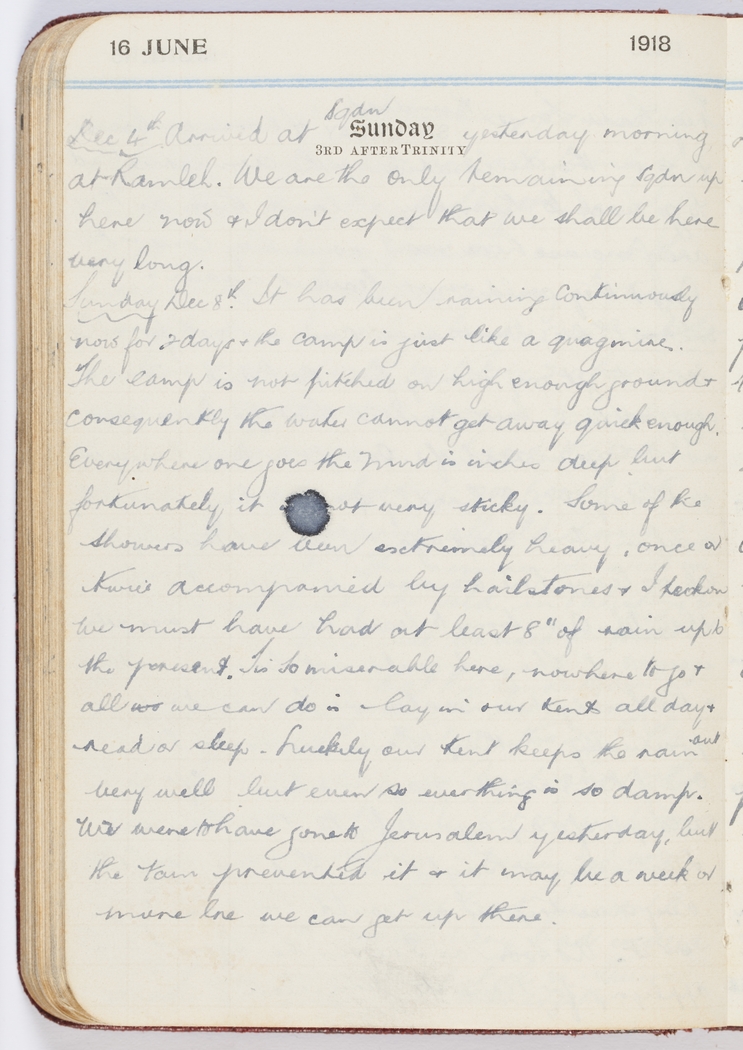 16 JUNE 1918
Sunday
3RD AFTER TRINITY
Sqdn
Dec 4th Arrived at yesterday morning
at Ramleh. We are the only remaining Sqdn up
here now & I don't expect that we shall be here
very long.
Sunday Dec 8th. It has been raining continuously
now for 2 days & the camp is just like a quagmire.
The camp is not pitched on high enough ground &
consequently the water cannot get away quick enough.
Everywhere one goes the mud is inches deep but
fortunately it not very sticky. Some of the
showers have been extremely heavy, once or
twice accompanied by hailstones & I reckon
we must have had at least 8" of rain up to
the present. Tis so miserable here, nowhere to go &
all we can do is lay in our tents all day &
read or sleep. Luckily our tent keeps the rain out
very well but even so everthing is so damp.
We were to have gone to Jerusalem yesterday, but
the rain prevented it & it may be a week or
more bre we can get up there.